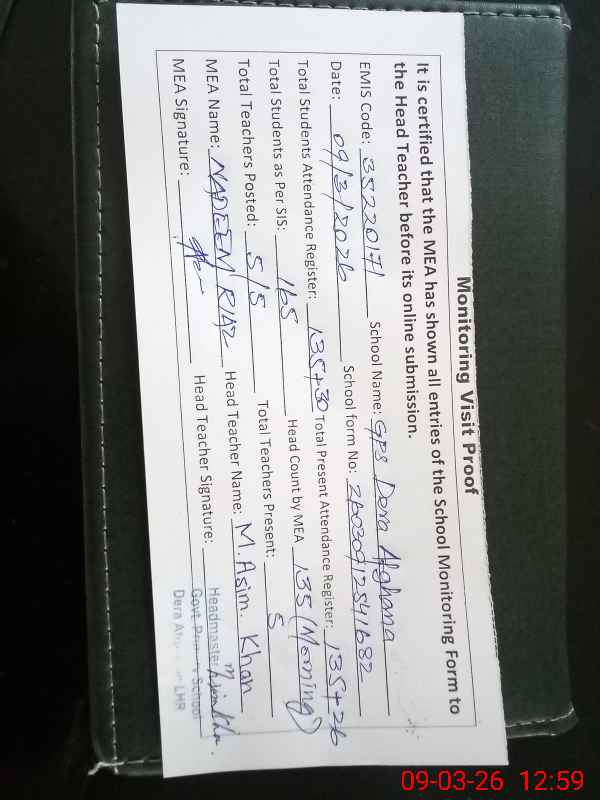 Monitoring Visit Proof
It is certified that the MEA has shown all entries of the School Monitoring Form to
the Head Teacher before its online submission.
EMIS Code: 35220171 School Name: GPS Dera Afghana
Date: 09/3/2026 School form No:
Total Students Attendance Register: 135+30 Total Present Attendance Register: 135+26
Total Students as Per SIS: 165 Head Count by MEA 135 (Morning)
Total Teachers Posted: 5/5 Total Teachers Present: 5
MEA Name: NADEEM RIAZ Head Teacher Name: M. Asim. Khan
MEA Signature: Head Teacher Signature:
Headmaster
Govt. School
Dera LHR
09-03-26 12:59